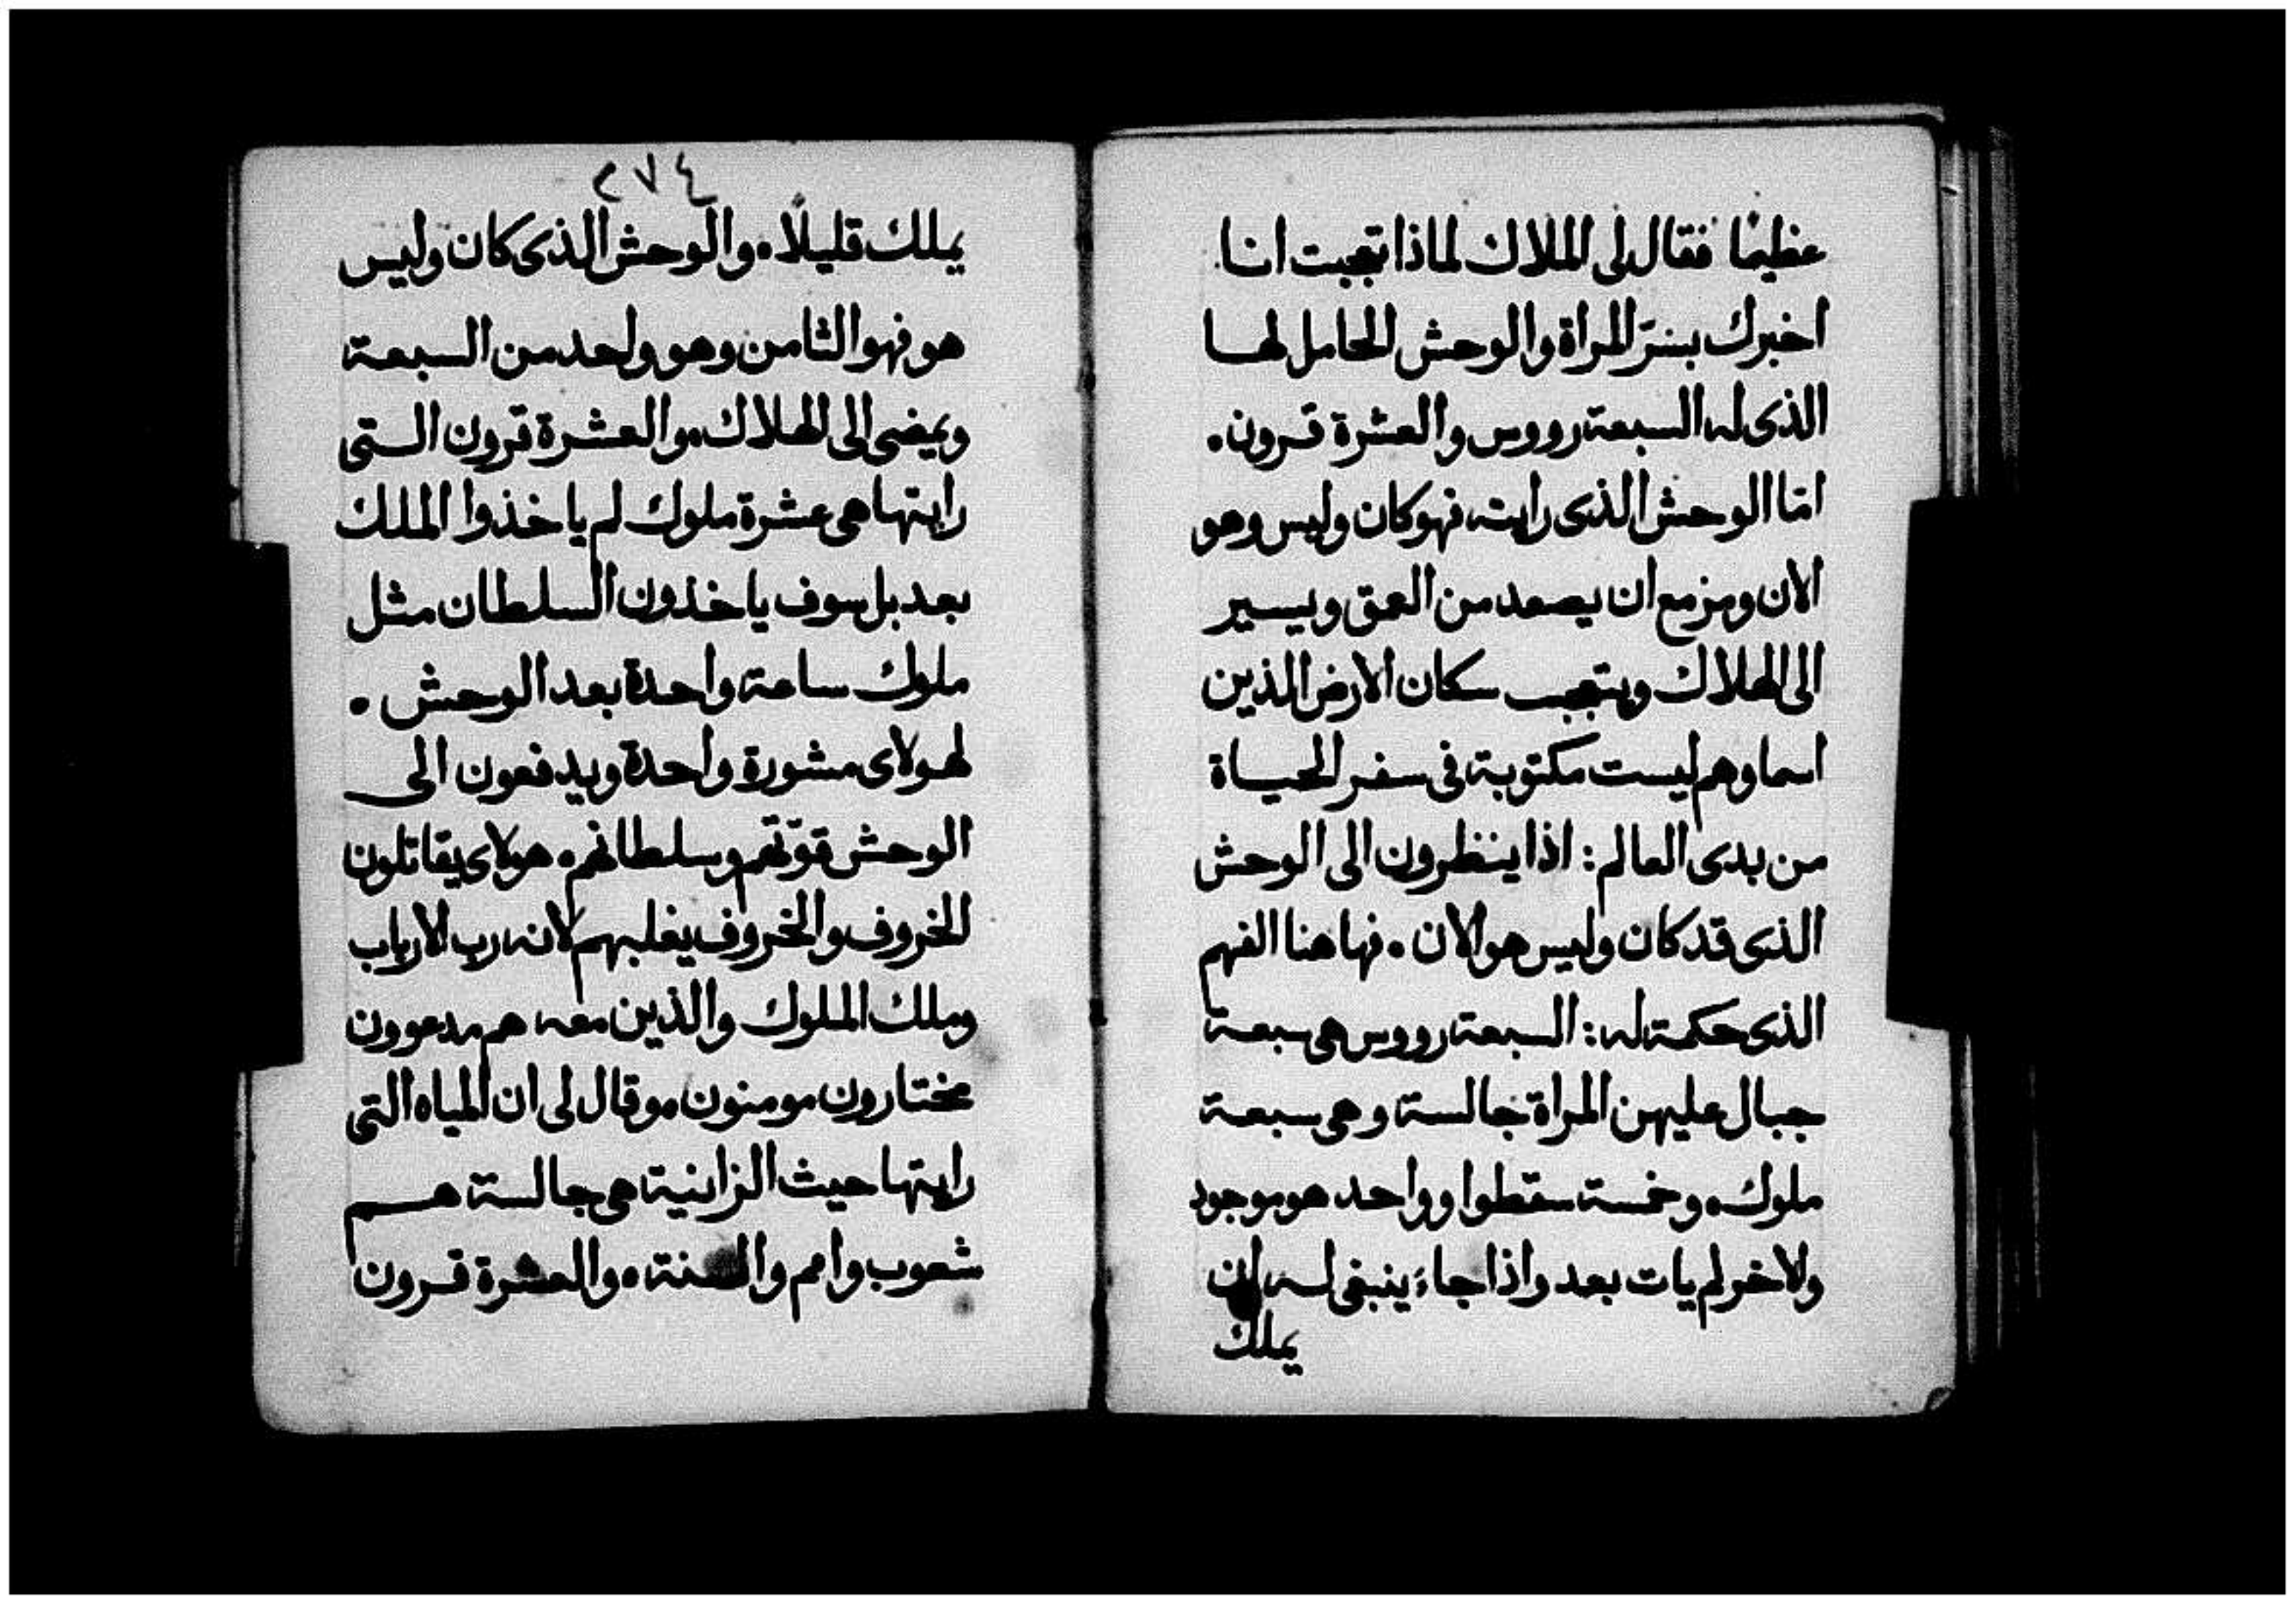 عظيمًا فقال لى الملاك لماذا تعجبت انا
اخبرك بسرّ المراة والوحش الحامل لها
الذى له السبعة رووس والعشرة قرون.
امّا الوحش الذى رايته فهو كان وليس وهو
الان ومزمع ان يصعد من العمق ويسير
الى الهلاك ويتعجب سكان الارض الذين
اسماوهم ليست مكتوبة فى سفر الحياة
من بدى العالم: اذا ينظرون الى الوحش
الذى قد كان وليس هو الان. فها هنا الفهم
الذى حكمة له: السبعة رووس هى سبعة
جبال عليهن المراة جالسة وهى سبعة
ملوك. وخمسة سقطوا وواحد هو موجود
ولاخر لم يات بعد واذا جاءَ ينبغى له ان
يملك
٢٧٤
يملك قليلًا. والوحش الذى كان وليس
هو فهو الثامن وهو واحد من السبعة
ويمضى الى الهلاك. والعشرة قرون التى
رايتها هى عشرة ملوك لم ياخذوا الملك
بعد بل سوف ياخذون السلطان مثل
ملوك ساعة واحدة بعد الوحش.
لهولاى مشورة واحدة ويدفعون الى
الوحش قوّتهم وسلطانهم. هولاى يقاتلون
الخروف والخروف يغلبهم لانه رب الارباب
وملك الملوك والذين معه هم مدعوون
مختارون مومنون. وقال لى ان المياه التى
رايتها حيث الزانية هى جالسة هم
شعوب وامم والسنة. والعشرة قرون